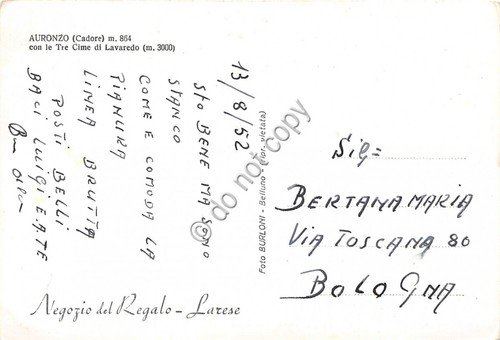 AURONZO (Cadore) m. 864
con le Tre Cime di Lavaredo (m. 3000)
13/8/52
Sto BENE MA SONO
STANCO
COME E COMODA LA
PIANURA
LINEA BRUTTA
POSTI BELLI
BACI LUIGI E ATE
Foto BURLONI - Belluno (ripr. vietata)
do not copy
Sig=
BERTANA MARIA
VIA TOSCANA 80
BOLOGNA
Negozio del Regalo - Larese